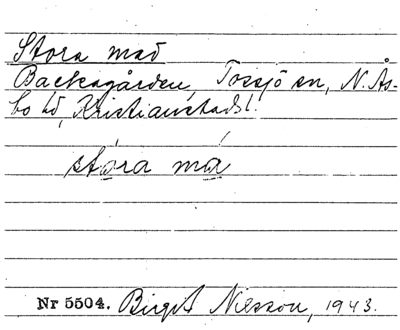 Stora mad
Backagården, Tossjö sn, N. Ås-
bo hd, Kristianstads l.
stóra má
Nr 5504. Birgit Nilsson, 1943.